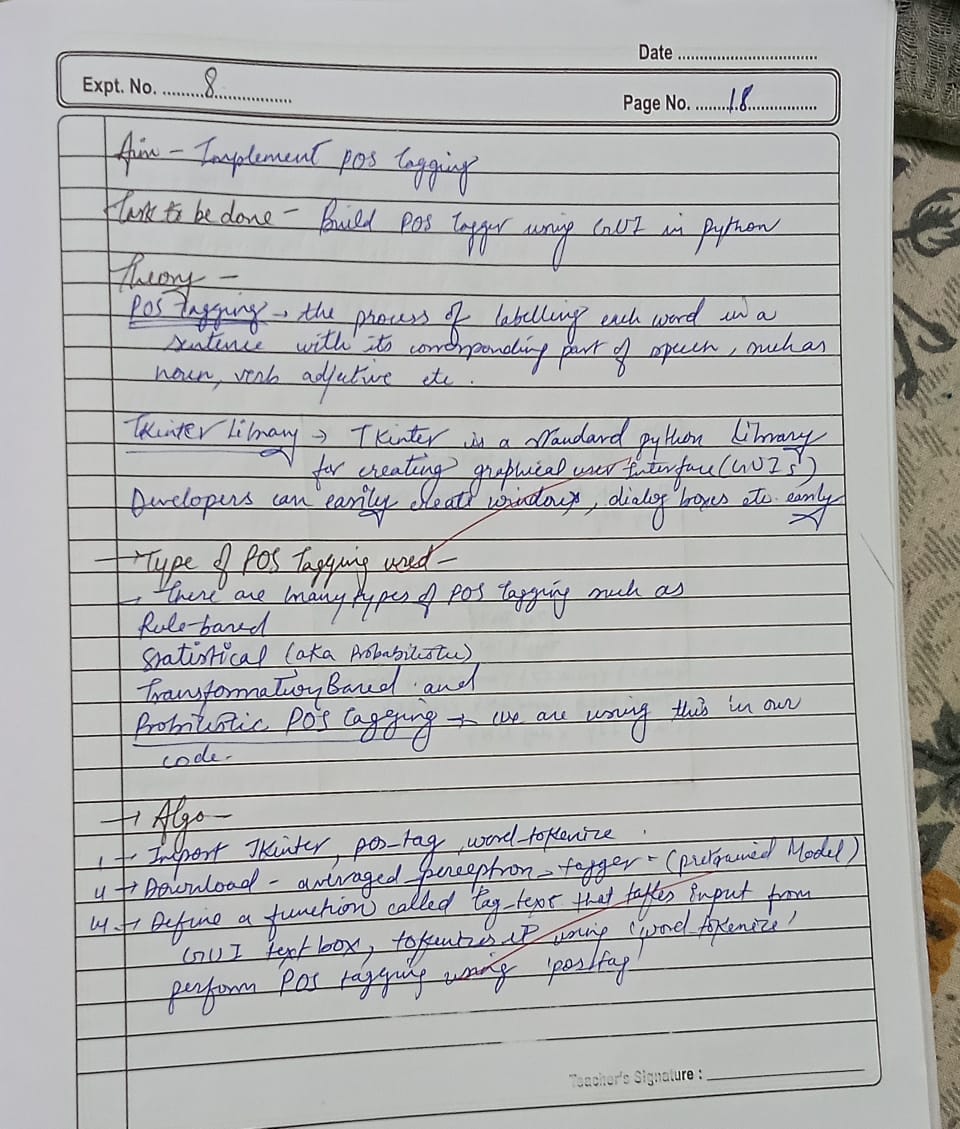 Date ................................
Expt. No. ........8..................
Page No. ........18................
Aim - Implement POS tagging
Task to be done - Build POS tagger using GUI in python
Theory -
POS Tagging → the process of labelling each word in a
sentence with its corresponding part of speech, such as
noun, verb adjective etc.
TKinter Library → TKinter is a standard python library
for creating graphical user interface (GUIs)
Developers can easily create windows, dialog boxes etc. easily
→ Type of POS Tagging used -
→ There are many types of POS tagging such as
Rule-based
Statistical (aka Probabilistic)
Transformation Based and
Probilistic POS tagging → we are using this in our
code.
→ Algo -
Import TKinter, pos-tag, word-tokenize
→ Download - averaged-perceptron-tagger - (pretrained Model)
→ Define a function called tag-text that takes input from
GUI text box, tokenizes it using 'word-tokenize'
perform POS tagging using 'postag'
Teacher's Signature : ____________________